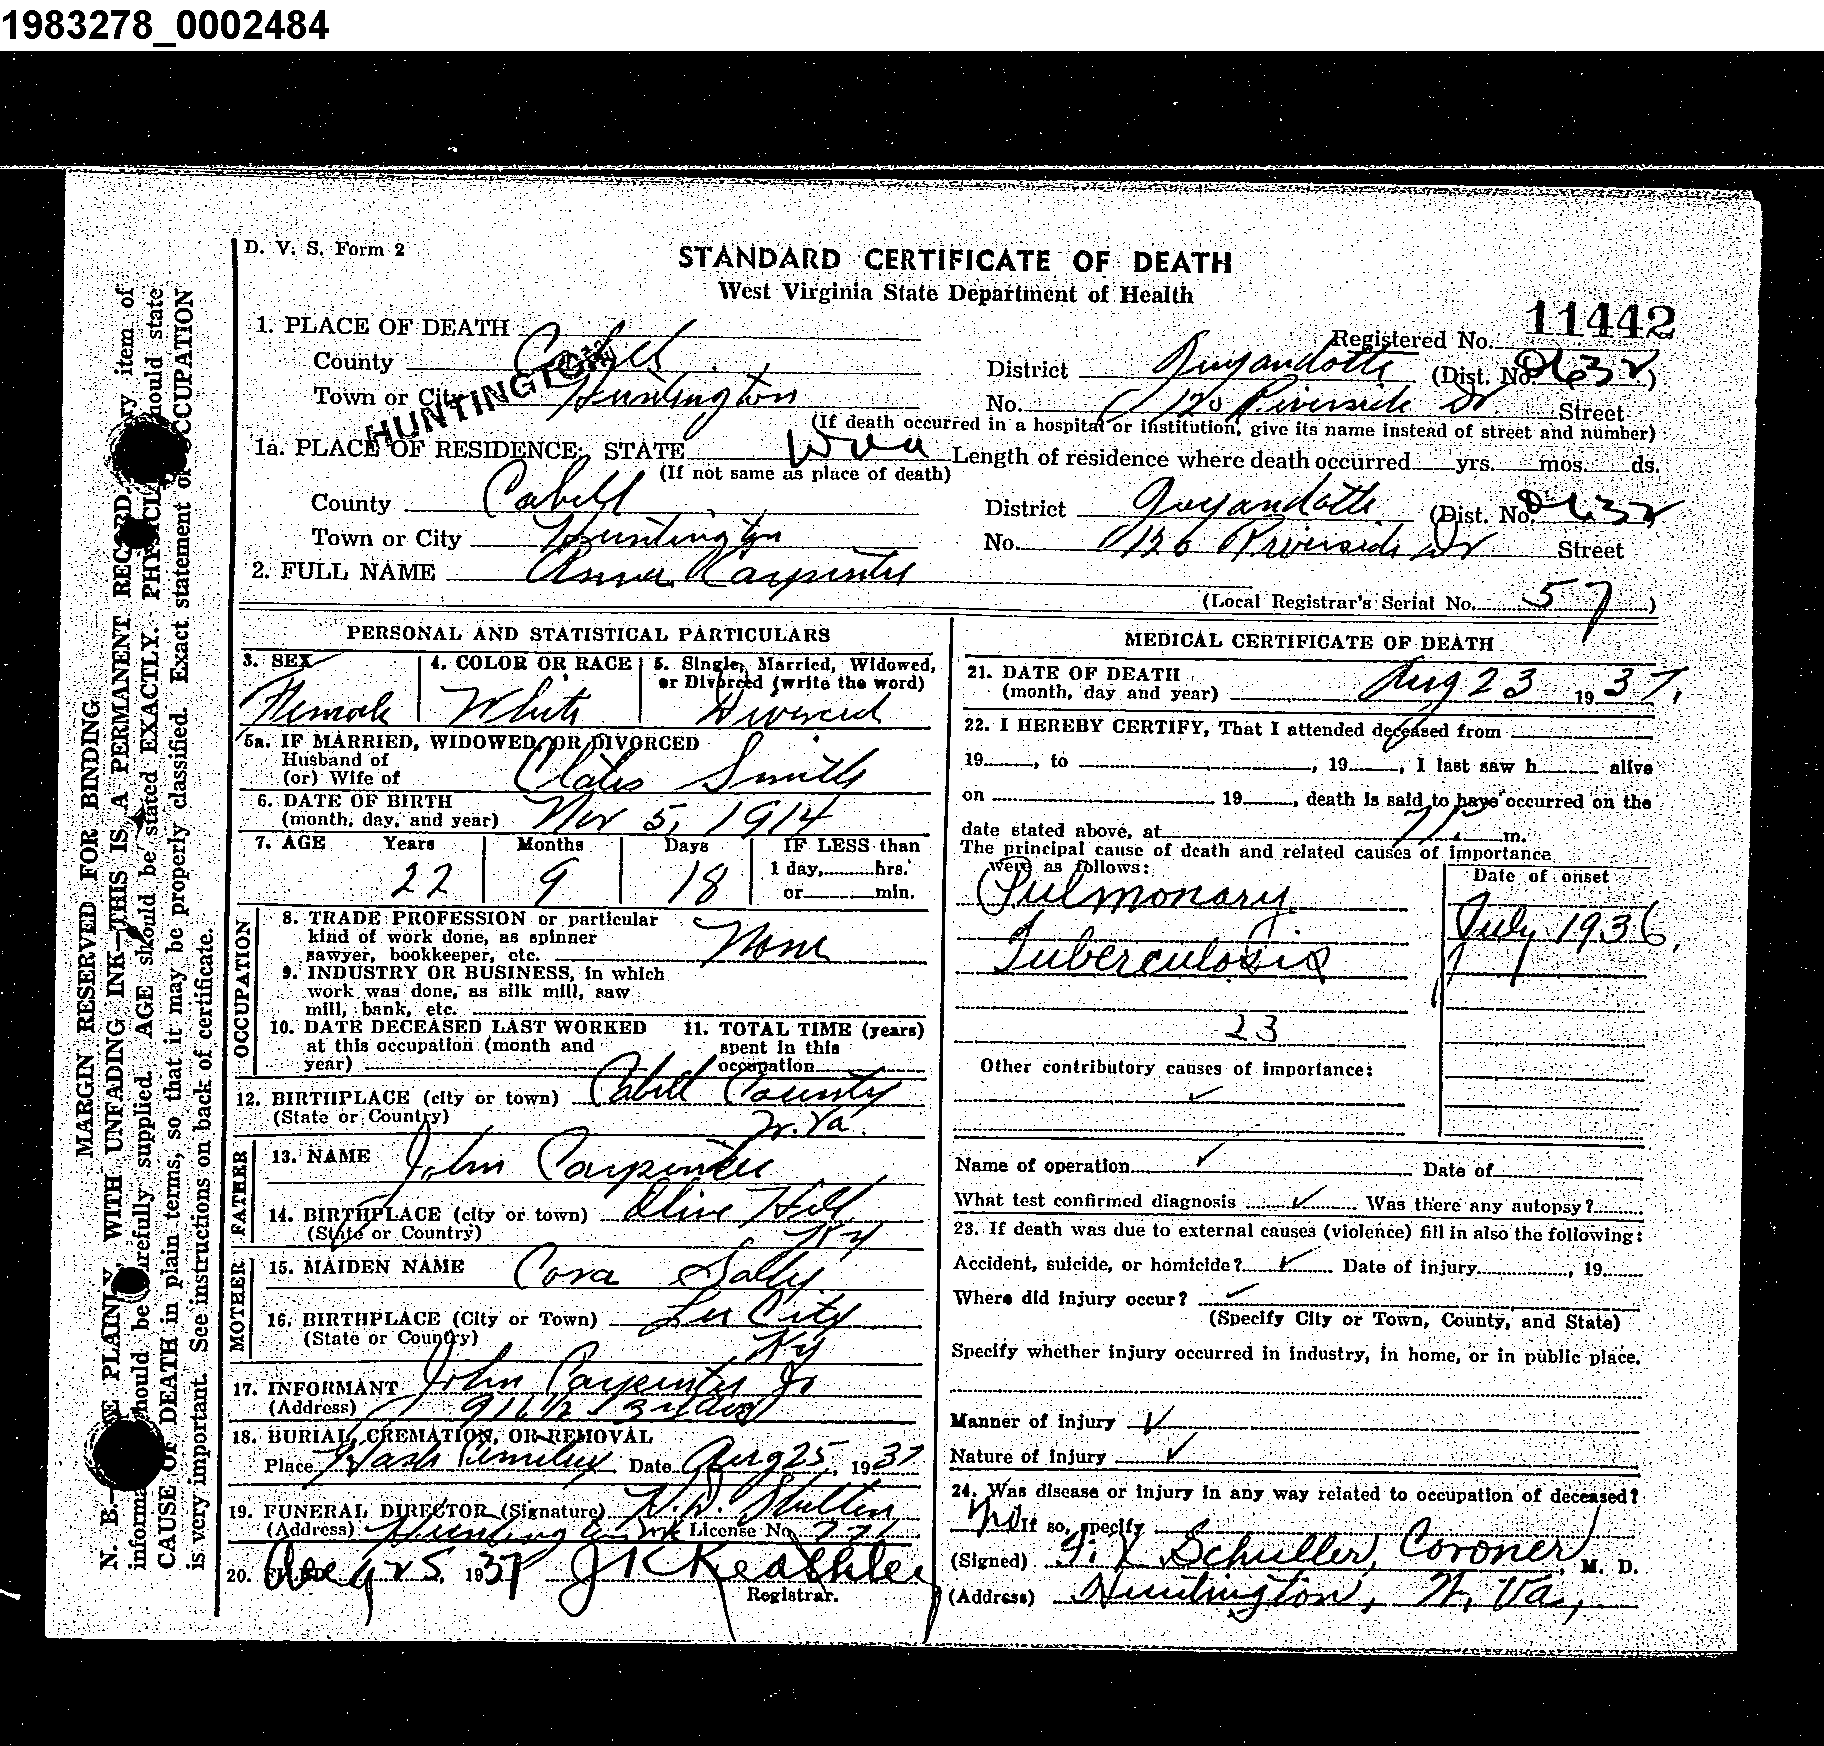 1983278_0002484
D. V. S. Form 2
STANDARD CERTIFICATE OF DEATH
West Virginia State Department of Health
11442
1. PLACE OF DEATH
Registered No.
County Cabell
District Guyandotte (Dist. No. 0632)
HUNTINGTON
Town or City Huntington
No. 120 Riverside Dr Street
(If death occurred in a hospital or institution, give its name instead of street and number)
1a. PLACE OF RESIDENCE: STATE W va Length of residence where death occurred yrs. mos. ds.
(If not same as place of death)
County Cabell
District Guyandotte (Dist. No. 0632
Town or City Huntington
No. 120 Riverside Dr Street
2. FULL NAME Anna Carpenter
(Local Registrar's Serial No. 57)
PERSONAL AND STATISTICAL PARTICULARS
3. SEX Female
4. COLOR OR RACE White
5. Single, Married, Widowed, or Divorced (write the word) Divorced
5a. IF MARRIED, WIDOWED, OR DIVORCED
Husband of
(or) Wife of Smith
6. DATE OF BIRTH
(month, day, and year) Nov 5, 1914
7. AGE Years Months Days IF LESS than
1 day, hrs.
22 9 18 or min.
OCCUPATION
8. TRADE PROFESSION or particular
kind of work done, as spinner
sawyer, bookkeeper, etc. None
9. INDUSTRY OR BUSINESS, in which
work was done, as silk mill, saw
mill, bank, etc.
10. DATE DECEASED LAST WORKED
at this occupation (month and
year)
11. TOTAL TIME (years)
spent in this
occupation
12. BIRTHPLACE (city or town) Cabell County
(State or Country) W. Va.
FATHER
13. NAME John Carpenter
14. BIRTHPLACE (city or town) Olive Hill
(State or Country) Ky
MOTHER
15. MAIDEN NAME Cora
16. BIRTHPLACE (City or Town) Lee City
(State or Country) Ky
17. INFORMANT John Carpenter Jr
(Address) 916 1/2
18. BURIAL, CREMATION, OR REMOVAL
Place Date Aug 25, 1937
19. FUNERAL DIRECTOR (Signature)
(Address) Huntington License No.
20. FILED Aug 25, 1937 J K Keathley
Registrar.
MEDICAL CERTIFICATE OF DEATH
21. DATE OF DEATH
(month, day and year) Aug 23 1937.
22. I HEREBY CERTIFY, That I attended deceased from
19 , to , 19 , I last saw h alive
on 19 , death is said to have occurred on the
date stated above, at 7 P. m.
The principal cause of death and related causes of importance
were as follows: Date of onset
Pulmonary July 1936.
Tuberculosis
23
Other contributory causes of importance:
✓
Name of operation ✓ Date of
What test confirmed diagnosis ✓ Was there any autopsy?
23. If death was due to external causes (violence) fill in also the following:
Accident, suicide, or homicide? ✓ Date of injury , 19
Where did injury occur? ✓
(Specify City or Town, County, and State)
Specify whether injury occurred in industry, in home, or in public place.
Manner of injury ✓
Nature of injury ✓
24. Was disease or injury in any way related to occupation of deceased?
No If so, specify
(Signed) Schuller, Coroner, M. D.
(Address) Huntington, W. Va,
MARGIN RESERVED FOR BINDING
PLAINLY, WITH UNFADING INK—THIS IS A PERMANENT RECORD. item of
should be carefully supplied. AGE should be stated EXACTLY. should state
CAUSE OF DEATH in plain terms, so that it may be properly classified. Exact statement of OCCUPATION
is very important. See instructions on back of certificate.